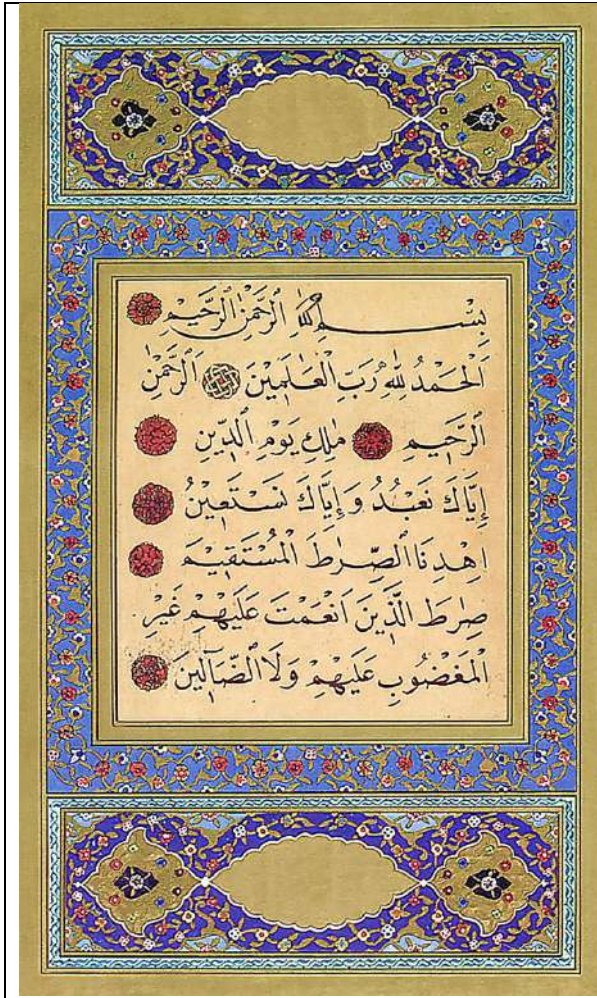 بِسْمِ اللّٰهِ الرَّحْمٰنِ الرَّحٖيمِ
اَلْحَمْدُ لِلّٰهِ رَبِّ الْعَالَمٖينَ اَلرَّحْمٰنِ
الرَّحٖيمِ مٰلِكِ يَوْمِ الدّٖينِ
اِيَّاكَ نَعْبُدُ وَاِيَّاكَ نَسْتَعٖينُ
اِهْدِنَا الصِّرٰطَ الْمُسْتَقٖيمَ
صِرٰطَ الَّذٖينَ اَنْعَمْتَ عَلَيْهِمْ غَيْرِ
الْمَغْضُوبِ عَلَيْهِمْ وَلَا الضَّٓالّٖينَ